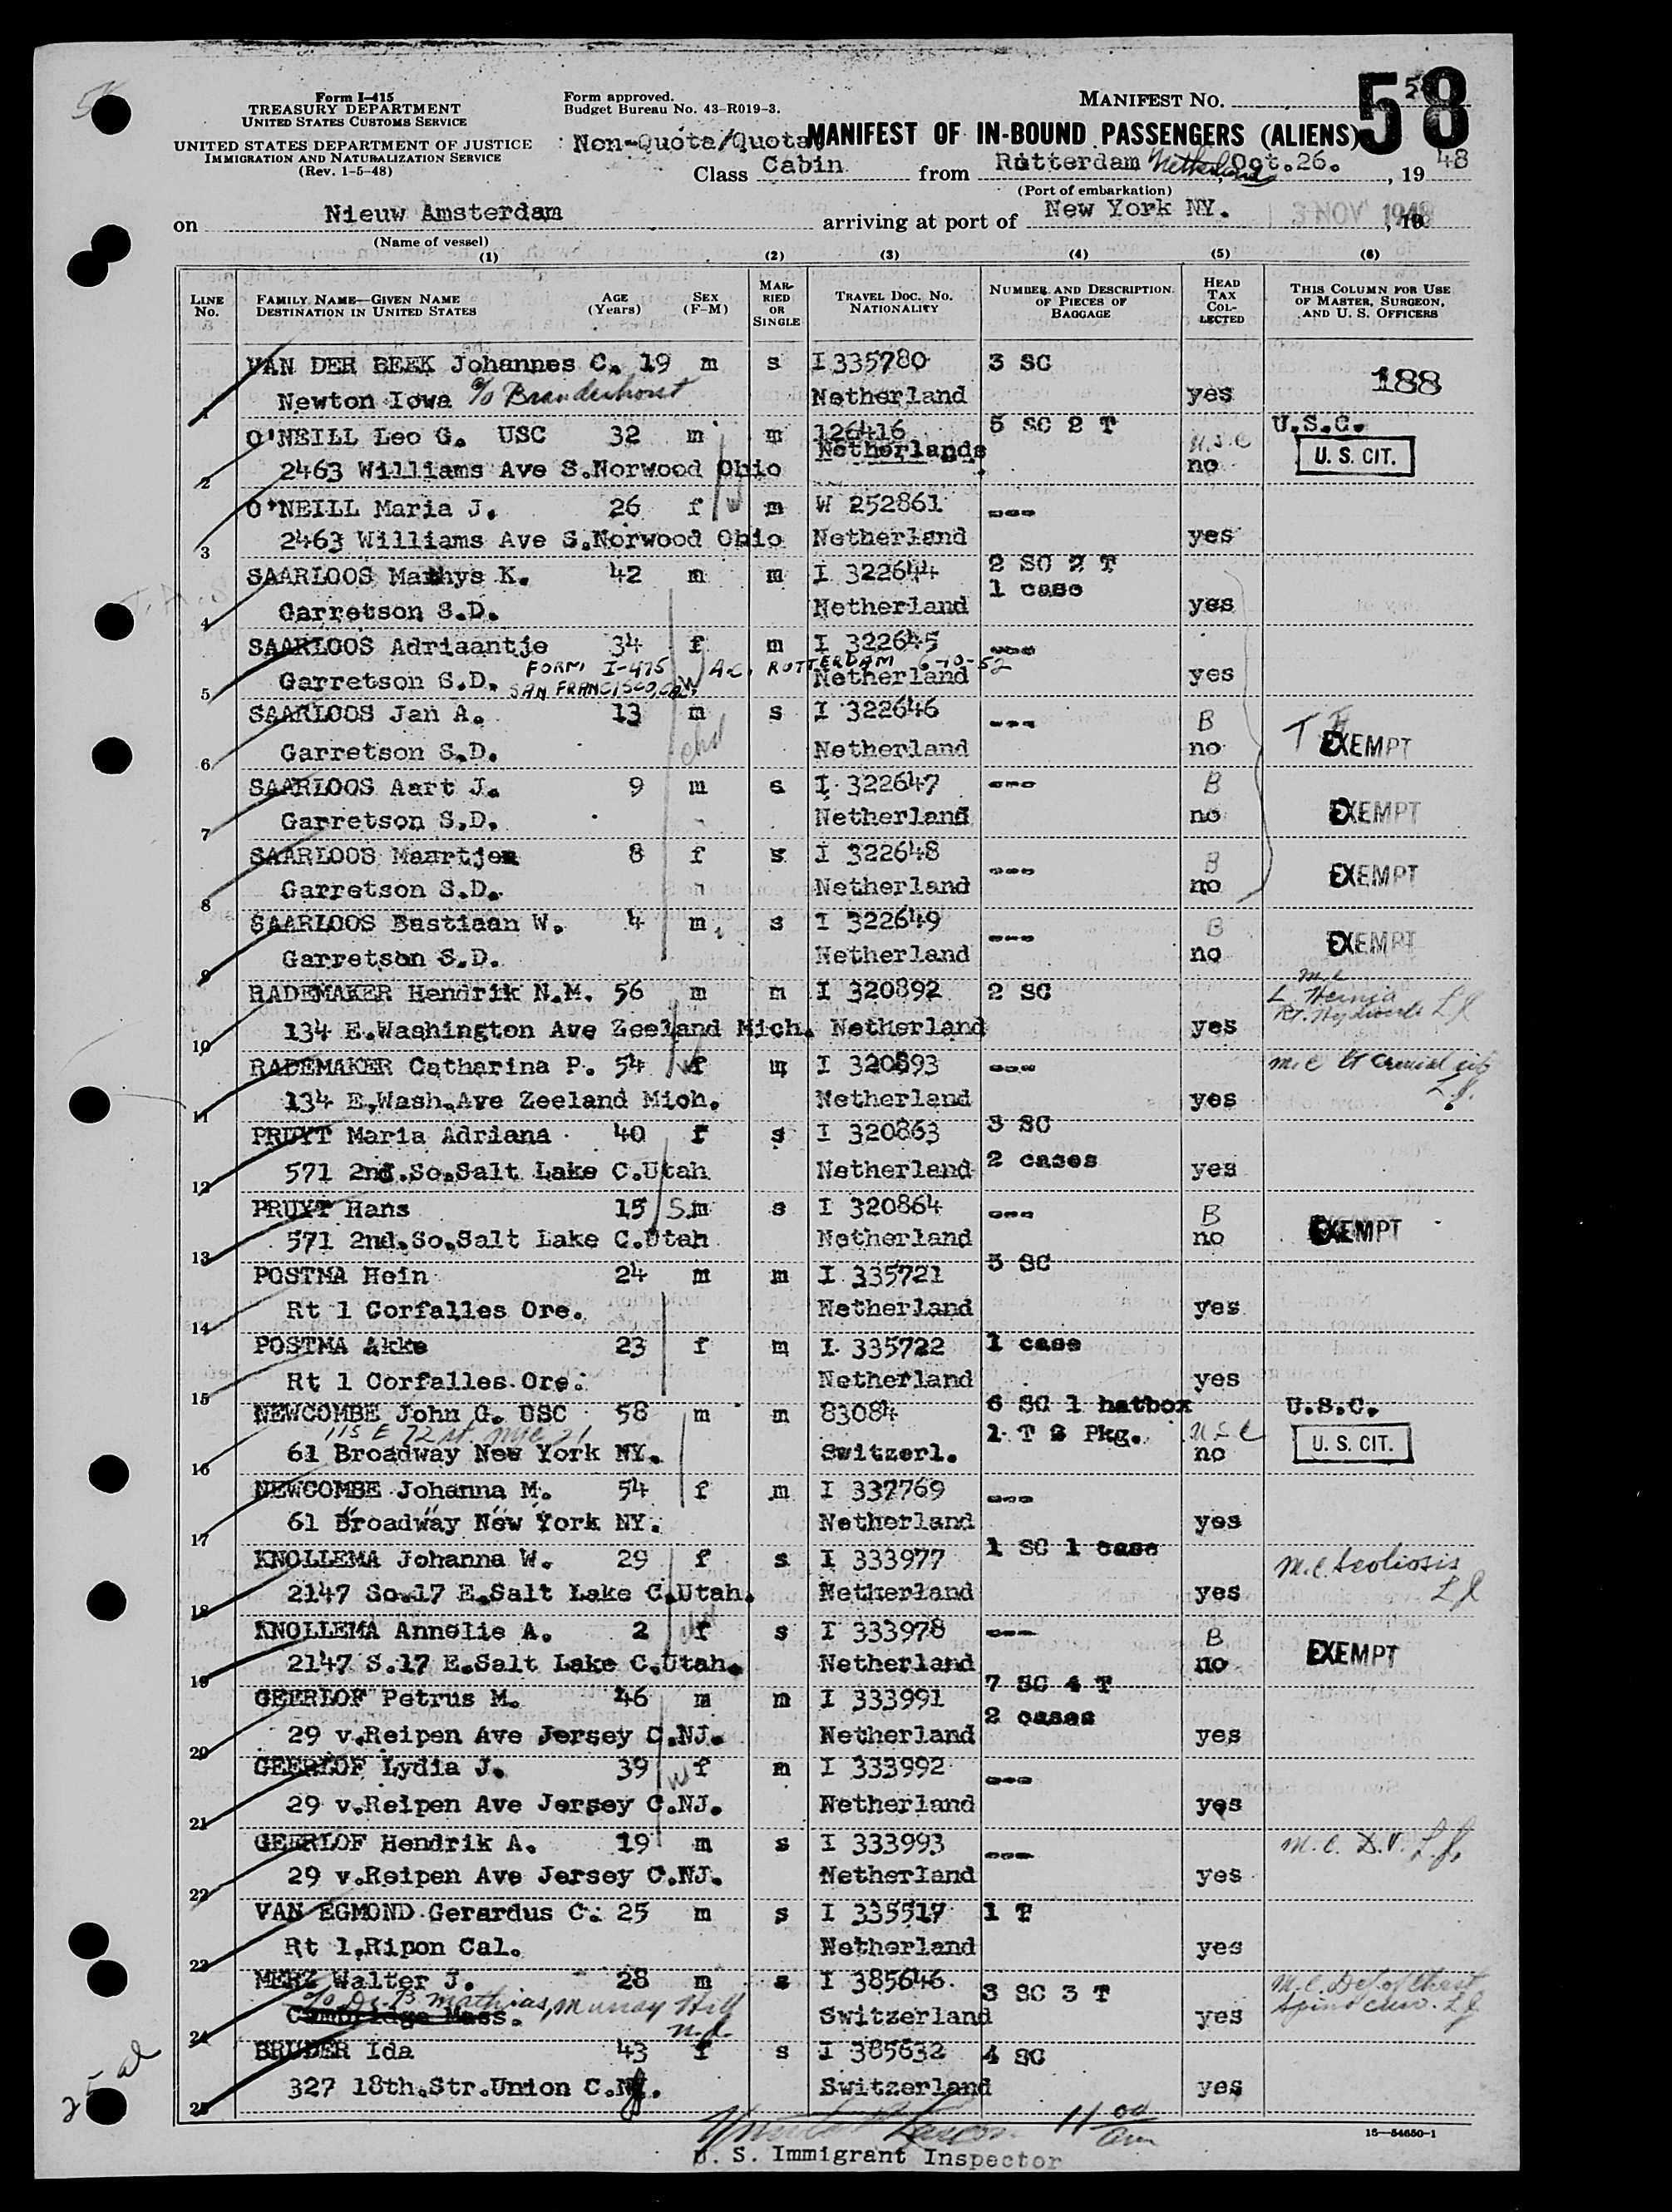 58
Form I-415
TREASURY DEPARTMENT
UNITED STATES CUSTOMS SERVICE
UNITED STATES DEPARTMENT OF JUSTICE
IMMIGRATION AND NATURALIZATION SERVICE
(Rev. 1-5-48)
Form approved.
Budget Bureau No. 43-R019-3.
MANIFEST NO.
Non-Quota/Quota MANIFEST OF IN-BOUND PASSENGERS (ALIENS)
Class Cabin from Rotterdam Netherlands Oct.26., 19 48
(Port of embarkation)
on Nieuw Amsterdam arriving at port of New York NY. 3 NOV 1948, 19
(Name of vessel)
(1) (2) (3) (4) (5) (6)
LINE NO. FAMILY NAME—GIVEN NAME DESTINATION IN UNITED STATES AGE (Years) SEX (F-M) MARRIED OR SINGLE TRAVEL DOC. NO. NATIONALITY NUMBER AND DESCRIPTION OF PIECES OF BAGGAGE HEAD TAX COLLECTED THIS COLUMN FOR USE OF MASTER, SURGEON, AND U. S. OFFICERS
VAN DER BEEK Johannes C. 19 m s I 335780 3 SC 188
1 Newton Iowa c/o Branderhorst Netherland yes
O'NEILL Leo G. USC 32 m m 126416 5 SC 2 T U.S.C.
Netherlands U.S.C
2 2463 Williams Ave S.Norwood Ohio no U. S. CIT.
O'NEILL Maria J. 26 f W m W 252861 ---
3 2463 Williams Ave S.Norwood Ohio Netherland yes
SAARLOOS Mathys K. 42 m m I 322644 2 SC 2 T
1 case
4 Garretson S.D. Netherland yes
SAARLOOS Adriaantje 34 f m I 322645 ---
FORM I-475 A.C. ROTTERDAM 6-10-52
5 Garretson S.D. SAN FRANCISCO, CAL. W Netherland yes
SAARLOOS Jan A. 13 m s I 322646 --- B
6 Garretson S.D. chd Netherland no EXEMPT
SAARLOOS Aart J. 9 m s I 322647 --- B
7 Garretson S.D. Netherland no EXEMPT
SAARLOOS Maartje 8 f s I 322648 --- B
8 Garretson S.D. " Netherland no EXEMPT
SAARLOOS Bastiaan W. 4 m s I 322649 --- B
9 Garretson S.D. Netherland no EXEMPT
RADEMAKER Hendrik N.M. 56 m m I 320892 2 SC m.c L. Hernia Rt. Hydrocele L.J.
10 134 E.Washington Ave Zeeland Mich. Netherland yes
RADEMAKER Catharina P. 54 f m I 320893 --- m.c L.J.
11 134 E.Wash.Ave Zeeland Mich. Netherland yes
PRUYT Maria Adriana 40 f s I 320863 3 SC
12 571 2nd.So.Salt Lake C.Utah Netherland 2 cases yes
PRUYT Hans 15 S m s I 320864 --- B
13 571 2nd.So.Salt Lake C.Utah Netherland no EXEMPT
POSTMA Hein 24 m m I 335721 5 SC
14 Rt 1 Corfalles Ore. Netherland yes
POSTMA Akke 23 f m I 335722 1 case
15 Rt 1 Corfalles Ore. Netherland yes
NEWCOMBE John G. USC 58 m m 83084 6 SC 1 hatbox U.S.C.
115 E 72 st, nyc 21 1 T 3 Pkg. U S C
16 61 Broadway New York NY. Switzerl. no U. S. CIT.
NEWCOMBE Johanna M. 54 f m I 337769 ---
17 61 Broadway New York NY. Netherland yes
KNOLLEMA Johanna W. 29 f s I 333977 1 SC 1 case m.c. Scoliosis L.J.
18 2147 So.17 E.Salt Lake C.Utah. Netherland yes
KNOLLEMA Annelie A. 2 f s I 333978 --- B
19 2147 S.17 E.Salt Lake C.Utah. Netherland no EXEMPT
GEERLOF Petrus M. 46 m m I 333991 7 SC 4 T
2 cases
20 29 v.Reipen Ave Jersey C.NJ. Netherland yes
GEERLOF Lydia J. 39 W f m I 333992 ---
21 29 v.Reipen Ave Jersey C.NJ. Netherland yes
GEERLOF Hendrik A. 19 m s I 333993 --- m.c. D.V. L.J.
22 29 v.Reipen Ave Jersey C.NJ. Netherland yes
VAN EGMOND Gerardus C. 25 m s I 335517 1 T
23 Rt 1,Ripon Cal. Netherland yes
MERZ Walter J. 28 m s I 385646 3 SC 3 T m.c. Def of Chest Spine Curv. L.J.
c/o Dr. B Mathias, Murray Hill N.J.
24 Cambridge Mass. Switzerland yes
BRUDER Ida 43 f s I 385632 4 SC
25 327 18th.Str.Union C.NJ. Switzerland yes
11 00 am
U. S. Immigrant Inspector
16—54650-1